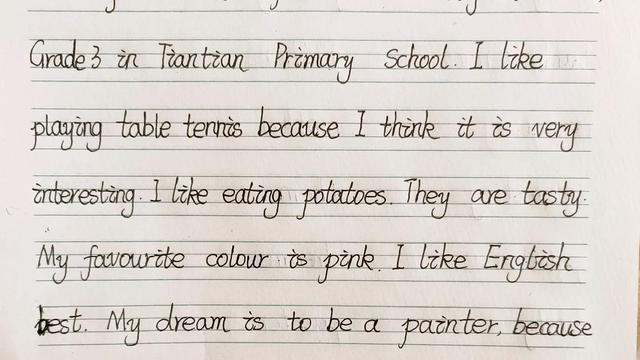 Grade 3 in Tiantian Primary School. I like
playing table tennis because I think it is very
interesting. I like eating potatoes. They are tasty.
My favourite colour is pink. I like English
best. My dream is to be a painter, because